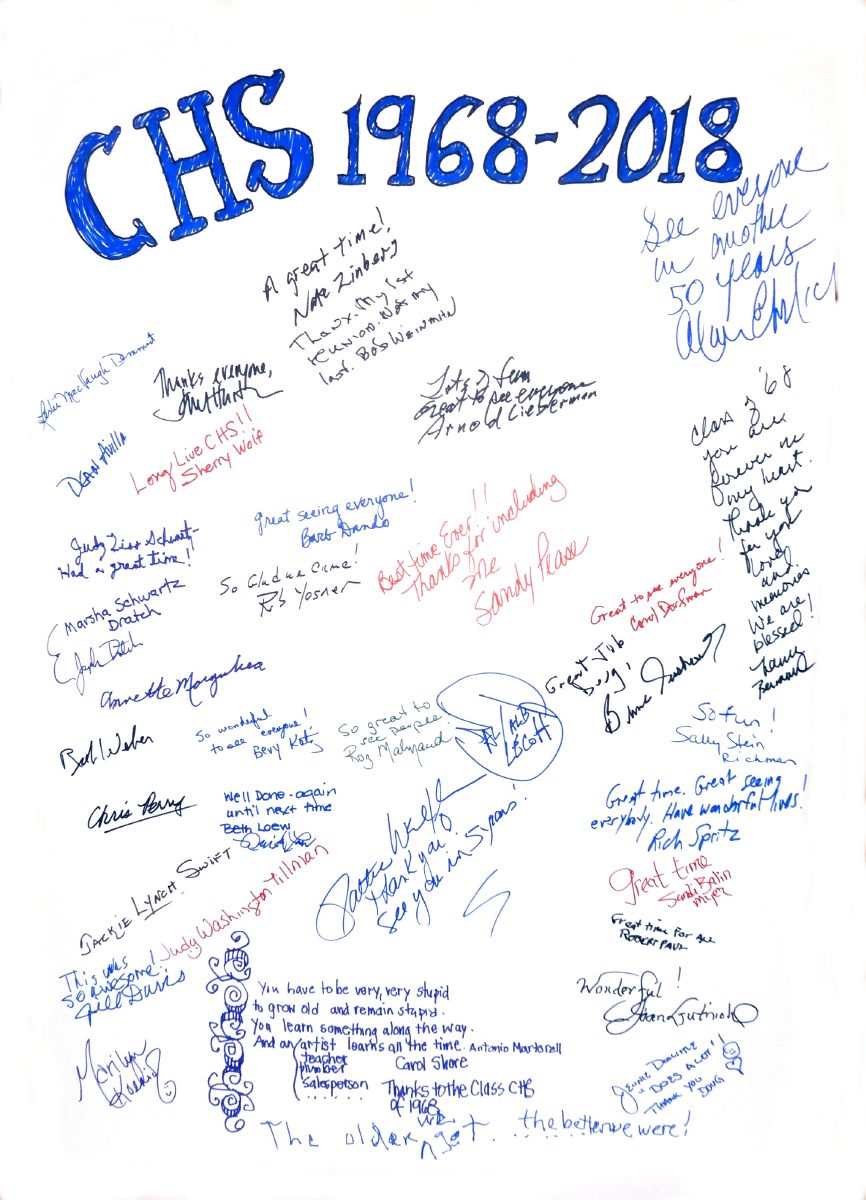 CHS 1968-2018
See everyone
in another
50 years
A great time!
Nate Zinberg
Thanx. My 1st
reunion. Not my
last. Bob Weinman
Thanks everyone,
Lots of fun
Great to see everyone
Arnold Lieberman
Dean Avilla
Long Live CHS!!
Sherry Wolf
Class of '68
you are
forever in
my heart.
Thank you
for your
love
and
memories
We are
blessed!
Nancy
Berman
great seeing everyone!
Barb Dando
Best time Ever!!
Thanks for including
me
Sandy Pease
Judy Zion Schwartz
Had a great time!
So Glad we Came!
Rob Yosner
Marsha Schwartz
Dratch
Great to see everyone!
Carol Dorfman
Great Job
Doug!
Annette
Barb Weber
So wonderful
to see everyone!
Bevy Katz
So great to
see people!
Roz
So fun!
Sally Stein
Richman
Chris Perry
Well Done - again
until next time
Beth Loew
thank you!
See you in 5 years!
Great time. Great seeing
everybody. Have wonderful lives!
Rich Spritz
Jackie Lynch Swift
Judy Washington Tillman
great time
Sandi Balin
Great time for all
Robert Paul
This was
so awesome!
Jill Davis
Wonderful!
Marilyn
You have to be very, very stupid
to grow old and remain stupid.
You learn something along the way.
And an artist learns all the time. Antonio Martorell
teacher
plumber
salesperson
......
Carol Shore
Thanks to the Class CHS
of 1968
Jennie
"Does a lot"!!
Thank you
Doug
The older we get........the better we were!